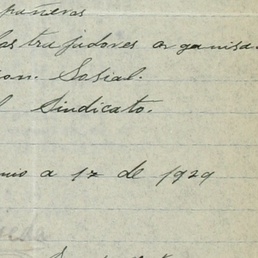 pañeros
las trafidores organisa
ion. Sosial.
l Sindicato.
nio a 12 de 1929